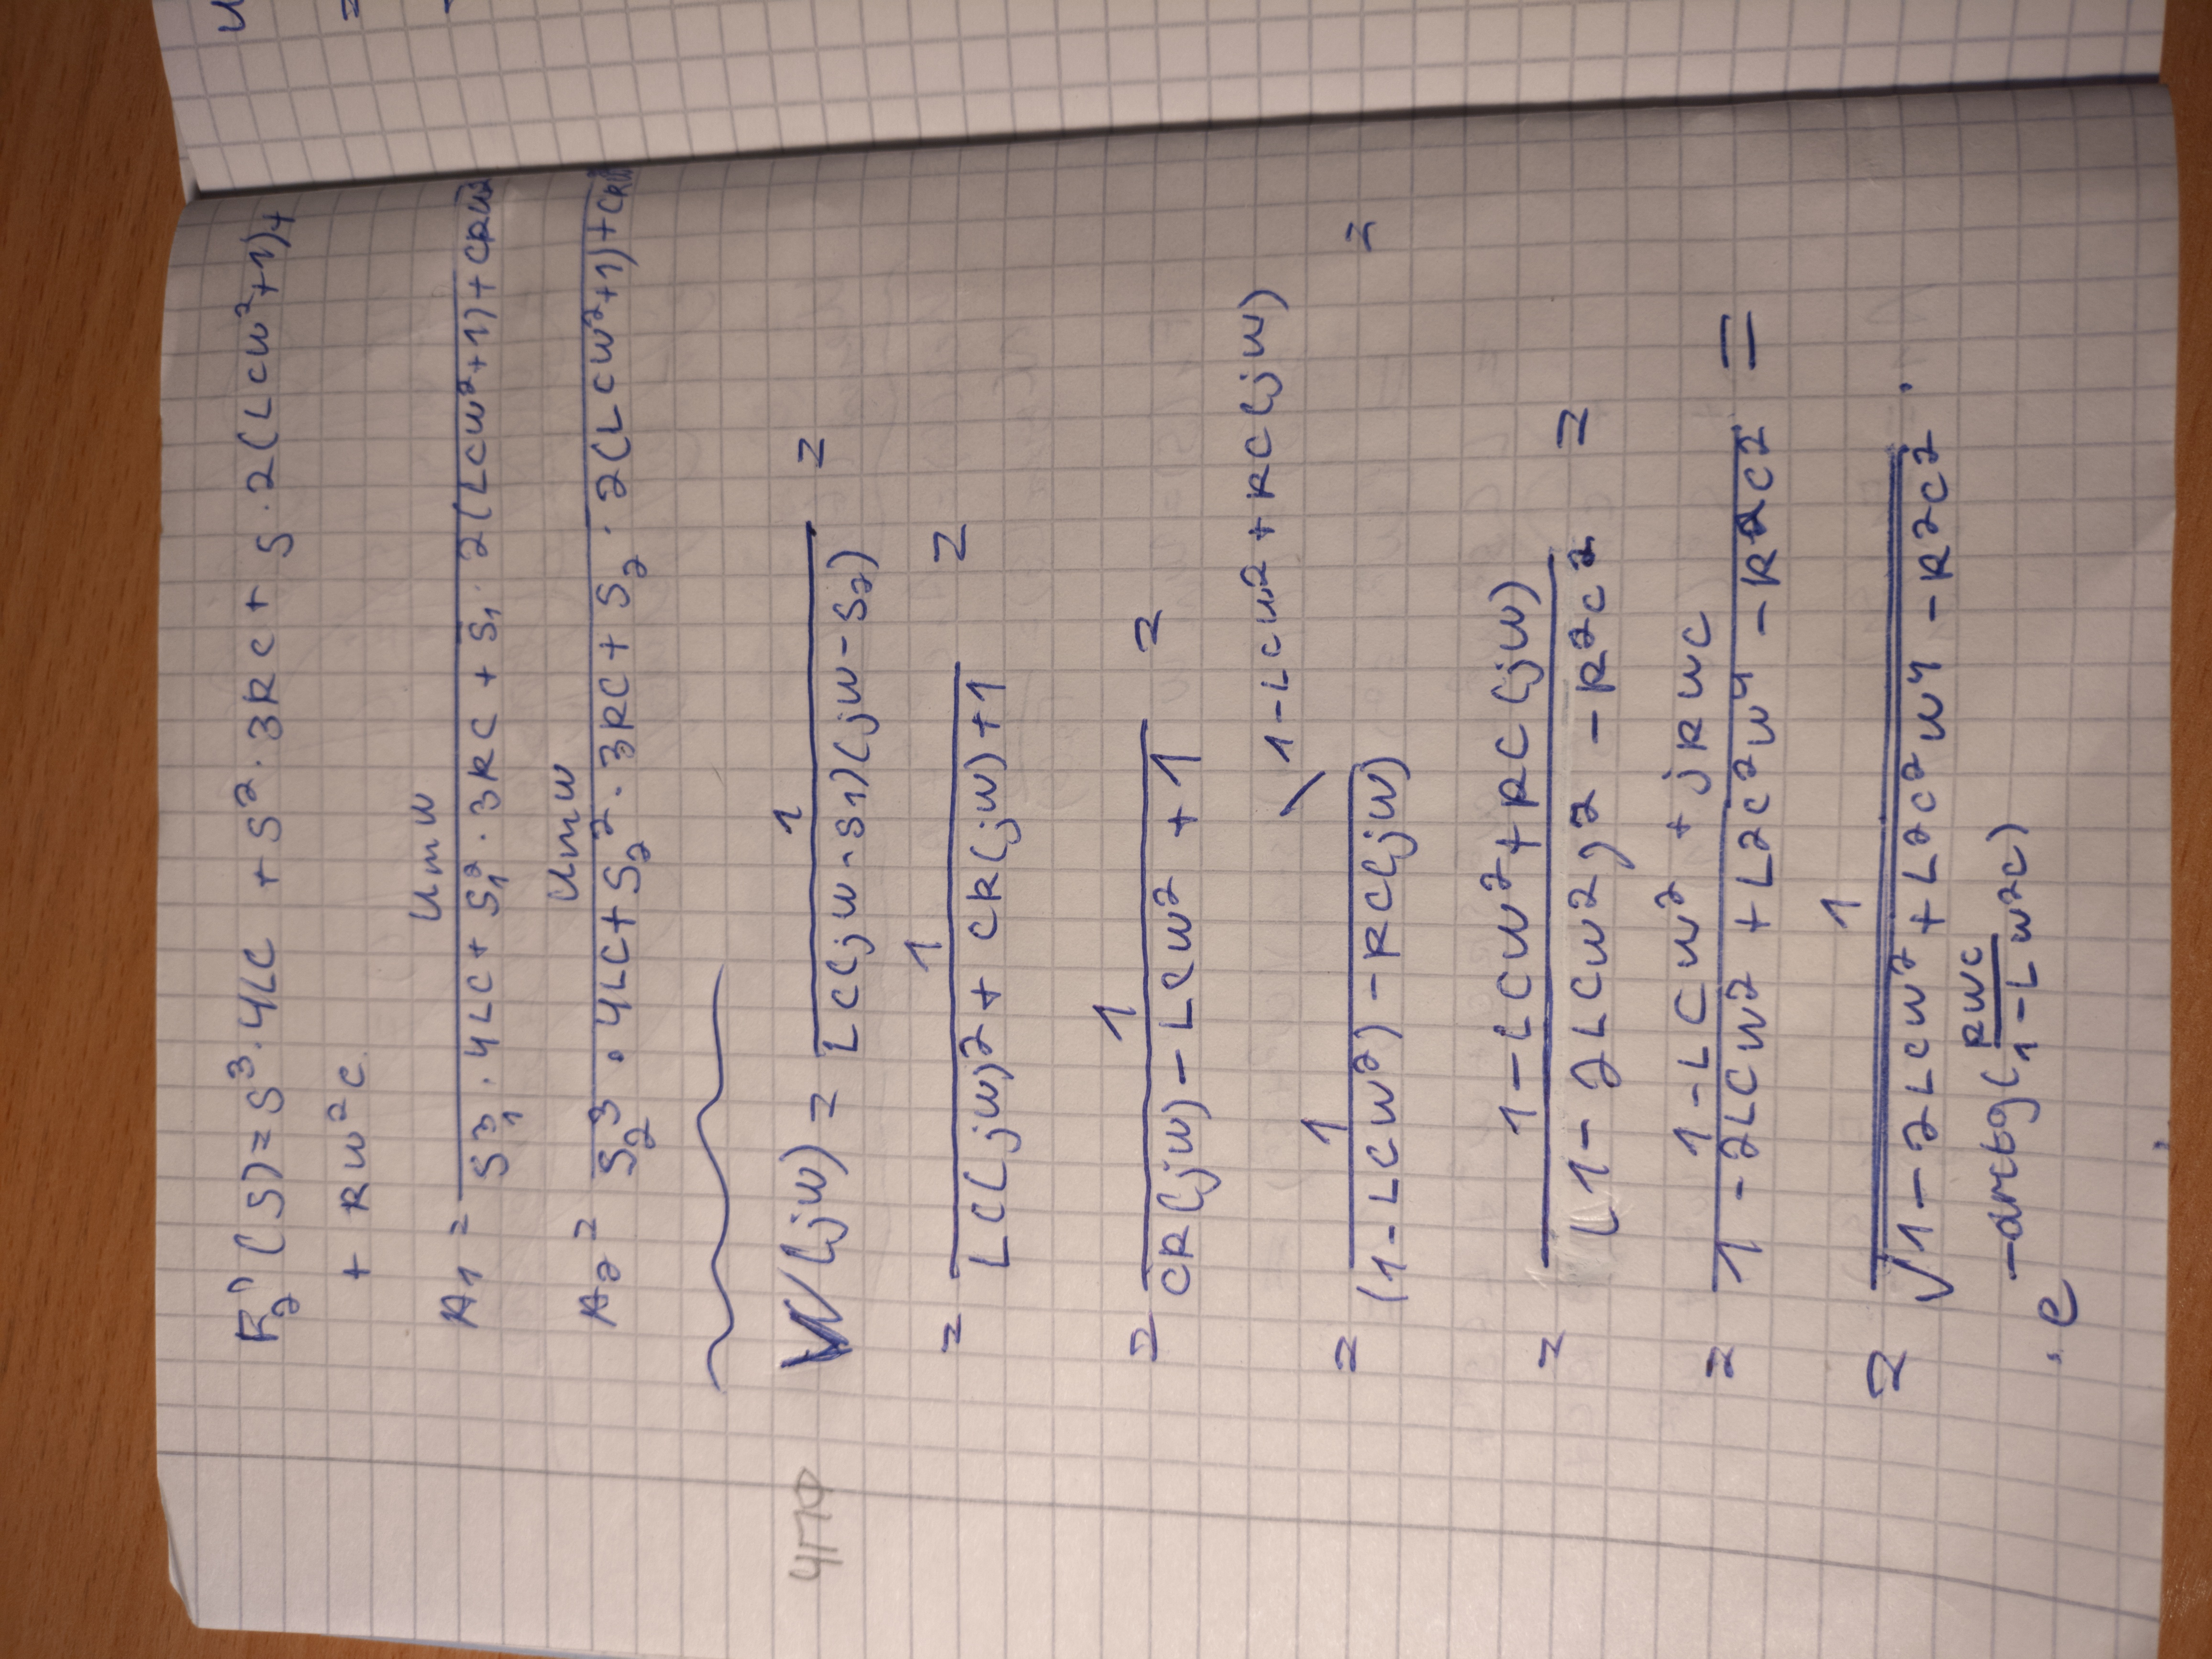 F₂'(s) = s³·4LC + s²·3RC + s·2(LCw²+1)+
+ Rw²C
Umw
A₁ = s₁³·4LC + s₁²·3RC + s₁·2(LCw²+1)+CRw²
Umw
A₂ = s₂³·4LC + s₂²·3RC + s₂·2(LCw²+1)+CR
ЧПФ
W(jw) = 1 / LC(jw-s₁)(jw-s₂) =
= 1 / LC(jw)² + CR(jw)+1 =
= 1 / CR(jw) - LCw² + 1 =
\ 1-LCw²+RC(jw)
= 1 / (1-LCw²) - RC(jw) =
= 1-LCw²+RC(jw) / (1-2LCw²)² - R²C² =
= 1-LCw² + jRwC / 1-2LCw² + L²C²w⁴ - R²C² =
= 1 / √1-2LCw² + L²C²w⁴ - R²C² ·
· e^-arctg(RwC / 1-Lw²C)